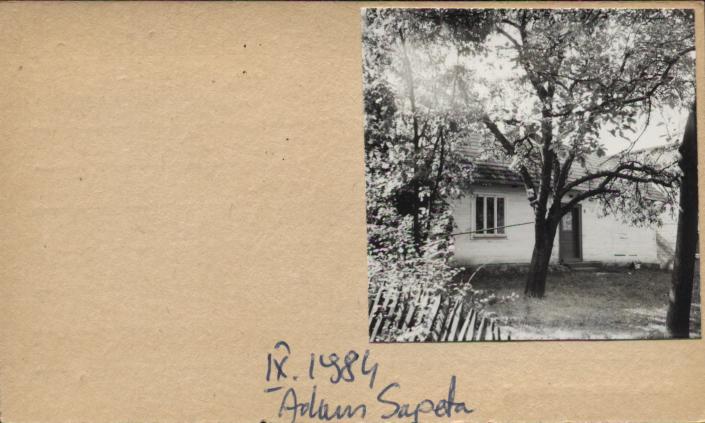 IX. 1984
Adam Sapeta